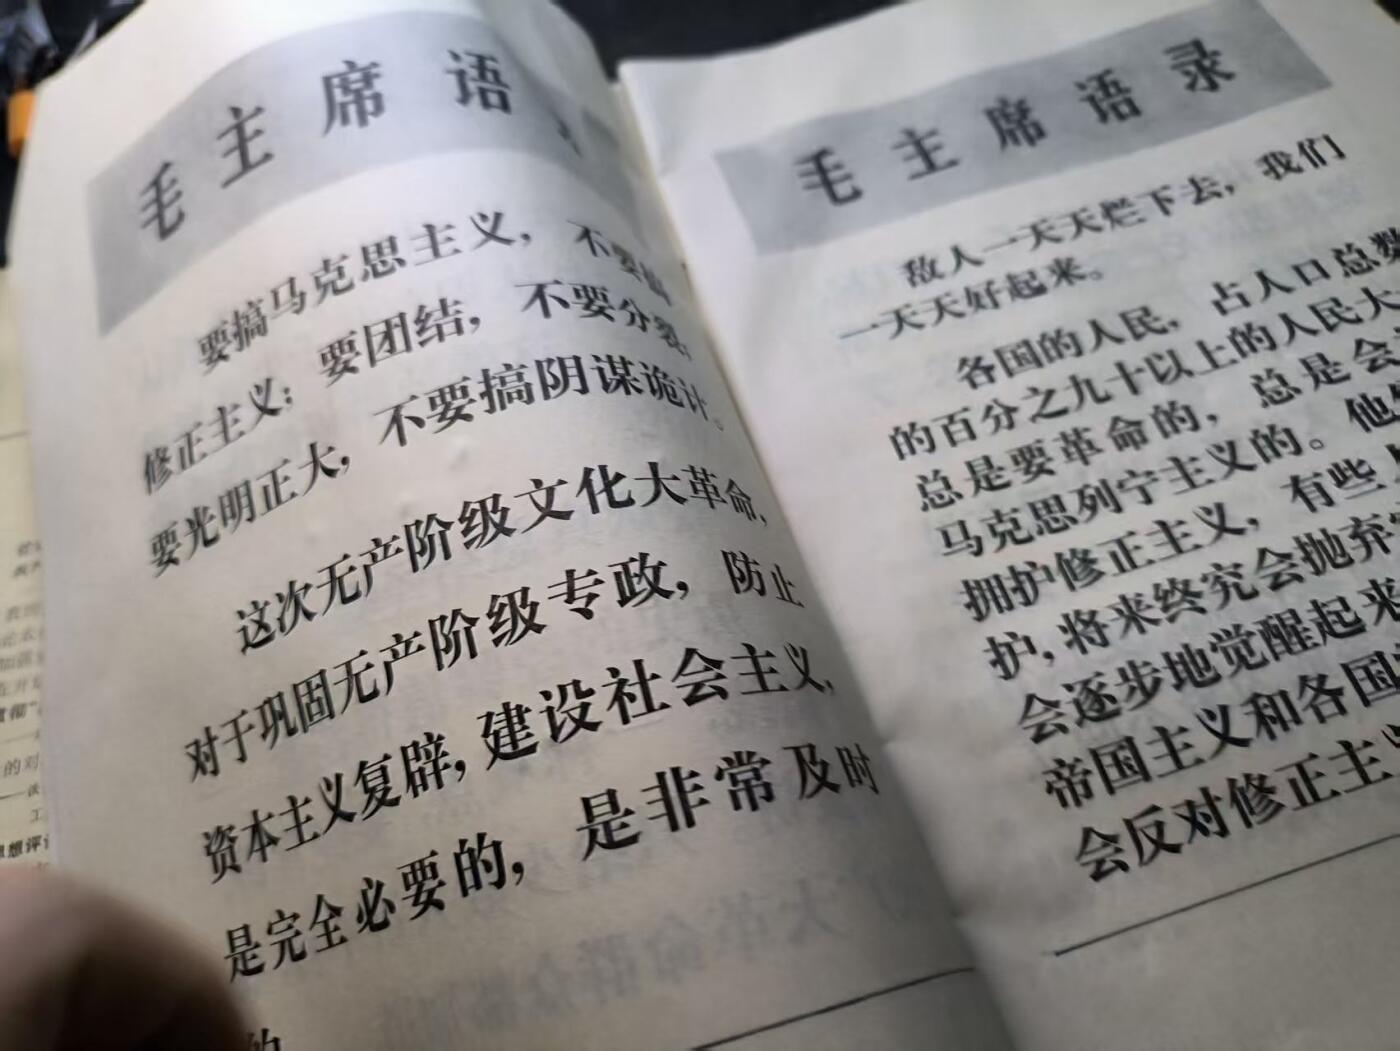 毛主席语
要搞马克思主义，不要搞
修正主义；要团结，不要分裂；
要光明正大，不要搞阴谋诡计。
这次无产阶级文化大革命，
对于巩固无产阶级专政，防止
资本主义复辟，建设社会主义，
是完全必要的，是非常及时
的
毛主席语录
敌人一天天烂下去，我们
一天天好起来。
各国的人民，占人口总数
的百分之九十以上的人民大
总是要革命的，总是会
马克思列宁主义的。他
拥护修正主义，有些
护，将来终究会抛弃
会逐步地觉醒起来
帝国主义和各国
会反对修正主